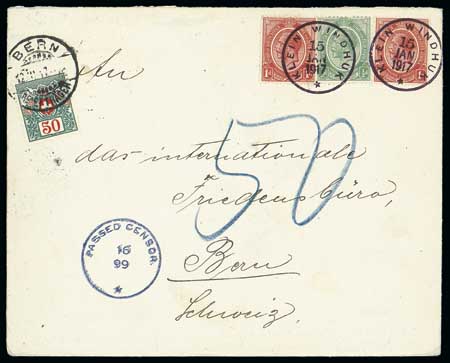 BERN
50
1d
½d
KLEIN WINDHUK
15
JAN
1917
KLEIN WINDHUK
15
JAN
1917
An
das internationale
Friedensbüro,
50
PASSED CENSOR.
16
99
Bern
Schweiz.